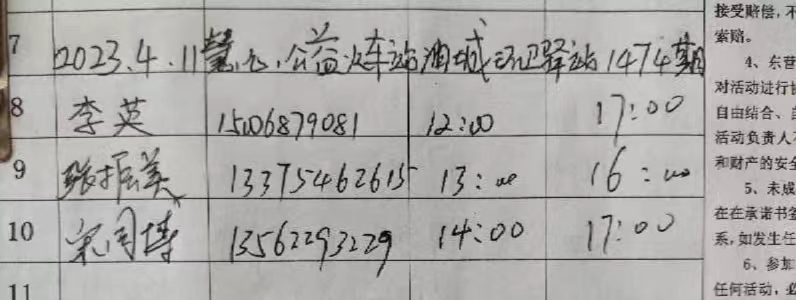 7 2023.4.11 公益 站油城环卫驿站1474期
8 李英 15006879081 12:00 17:00
9 张振美 13375462615 13:00 16:00
10 宋同博 13562293229 14:00 17:00
11
接受赔偿,不
索赔。
4、东营
对活动进行
自由结合、自
活动负责人不
和财产的安全
5、未成
在在承诺书签
系,如发生任
6、参加
任何活动,必